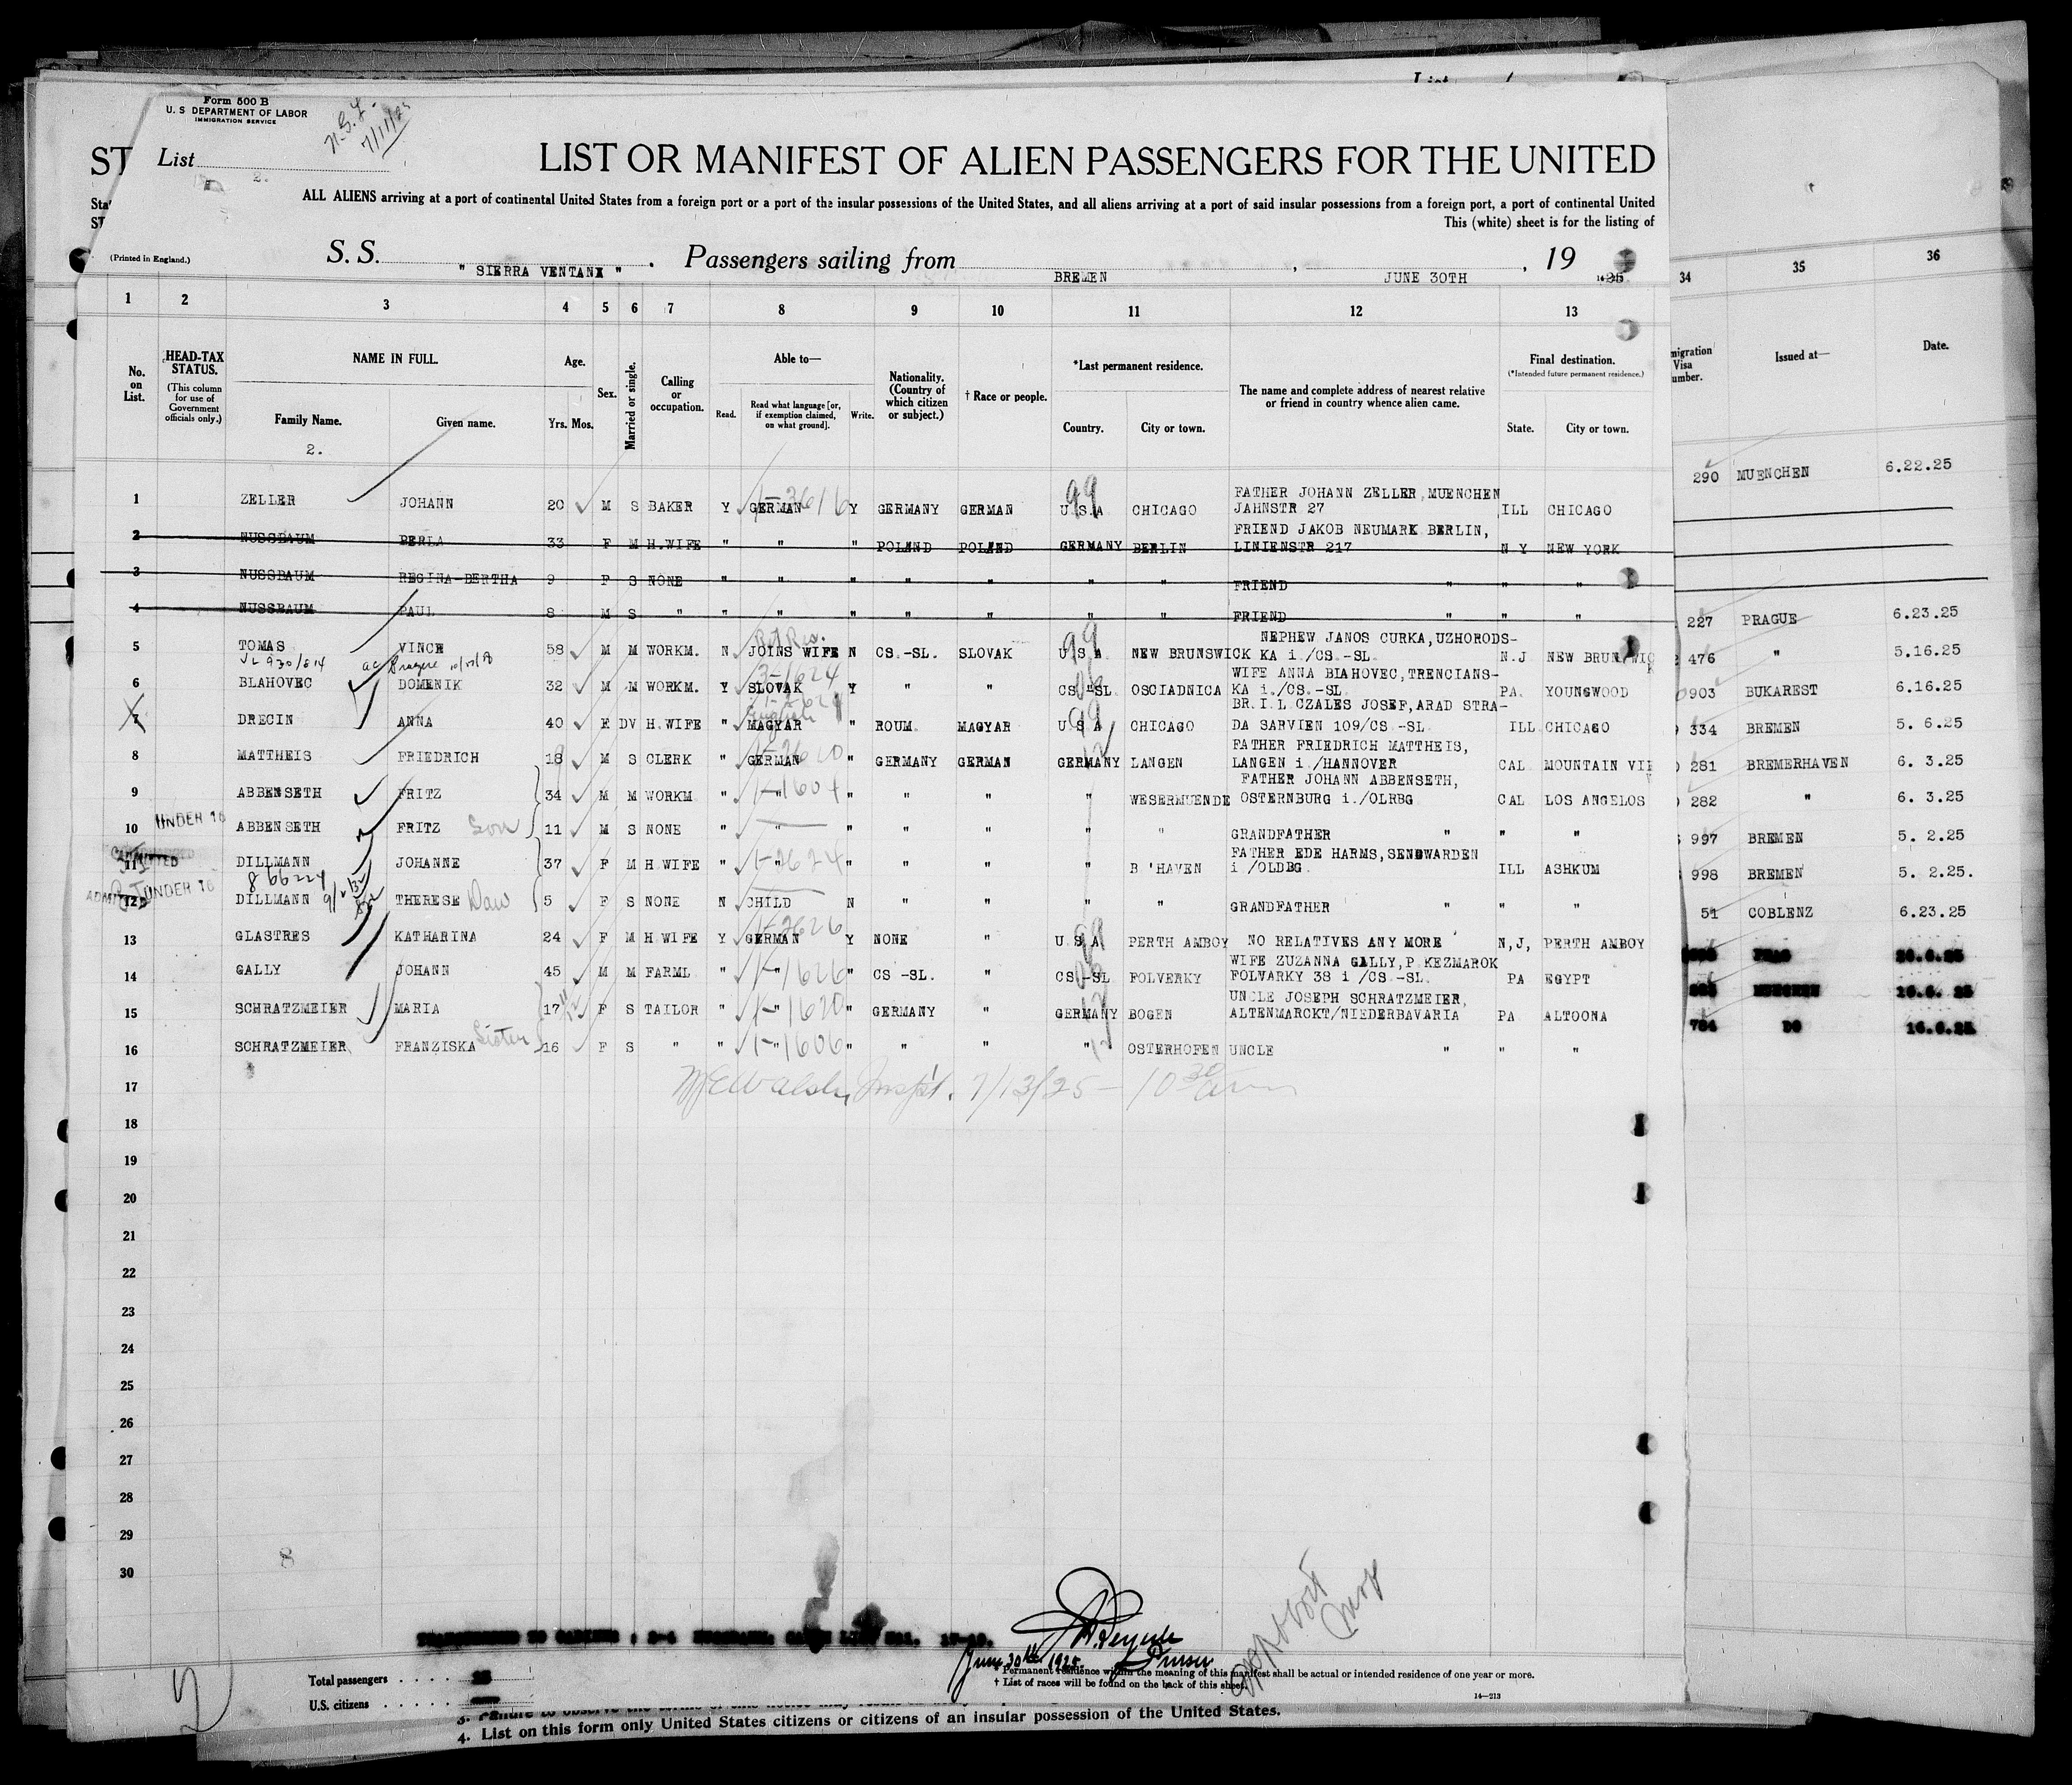 Form 500 B
U. S DEPARTMENT OF LABOR
IMMIGRATION SERVICE
7/11/25
ST List
2.
LIST OR MANIFEST OF ALIEN PASSENGERS FOR THE UNITED
ALL ALIENS arriving at a port of continental United States from a foreign port or a port of the insular possessions of the United States, and all aliens arriving at a port of said insular possessions from a foreign port, a port of continental United
This (white) sheet is for the listing of
(Printed in England.)
S. S. " SIERRA VENTANA " . Passengers sailing from BREMEN , JUNE 30TH , 19 25
1 2 3 4 5 6 7 8 9 10 11 12 13 34 35 36
No. on List.
HEAD-TAX STATUS.
(This column for use of Government officials only.)
NAME IN FULL.
Family Name. Given name.
2.
Age.
Yrs. Mos.
Sex.
Married or single.
Calling or occupation.
Able to—
Read. Read what language [or, if exemption claimed, on what ground]. Write.
Nationality. (Country of which citizen or subject.)
† Race or people.
*Last permanent residence.
Country. City or town.
The name and complete address of nearest relative or friend in country whence alien came.
Final destination.
(*Intended future permanent residence.)
State. City or town.
migration Visa umber.
Issued at—
Date.
290 MUENCHEN 6.22.25
1 ZELLER JOHANN 20 M S BAKER Y GERMAN Y GERMANY GERMAN U.S.A CHICAGO FATHER JOHANN ZELLER, MUENCHEN JAHNSTR 27 ILL CHICAGO
1-3616 99
2 NUSSBAUM BERLA 33 F M H.WIFE " " " POLAND POLAND GERMANY BERLIN FRIEND JAKOB NEUMARK BERLIN, LINIENSTR 217 N Y NEW YORK
3 NUSSBAUM REGINA-BERTHA 9 F S NONE " " " " " " " FRIEND " " "
4 NUSSBAUM PAUL 8 M S " " " " " " " " FRIEND " " "
227 PRAGUE 6.23.25
5 TOMAS VINCE 58 M M WORKM. N JOINS WIFE N CS.-SL. SLOVAK U.S.A NEW BRUNSWICK NEPHEW JANOS CURKA, UZHORODS- KA i./CS.-SL. N.J NEW BRUNSWIC
99
476 " 5.16.25
6 BLAHOVEC DOMENIK 32 M M WORKM. Y SLOVAK Y " " CS.-SL OSCIADNICA WIFE ANNA BLAHOVEC, TRENCIANS- KA i./CS.-SL. PA. YOUNGWOOD
3-1624
903 BUKAREST 6.16.25
7 DRECIN ANNA 40 F DV H.WIFE " MAGYAR " ROUM. MAGYAR U S A CHICAGO BR.I.L CZALES JOSEF, ARAD STRA- DA SARVIEN 109/CS.-SL. ILL CHICAGO
English 99
334 BREMEN 5. 6.25
8 MATTHEIS FRIEDRICH 18 M S CLERK " GERMAN " GERMANY GERMAN GERMANY LANGEN FATHER FRIEDRICH MATTHEIS, LANGEN i./HANNOVER CAL MOUNTAIN VIE
281 BREMERHAVEN 6. 3.25
9 ABBENSETH FRITZ 34 M M WORKM " " " " " " WESERMUENDE FATHER JOHANN ABBENSETH, OSTERNBURG i./OLRBG CAL LOS ANGELOS
1-1604
282 " 6. 3.25
UNDER 16
10 ABBENSETH FRITZ Son 11 M S NONE " " " " " " " GRANDFATHER " " "
997 BREMEN 5. 2.25
ADMITTED
11 DILLMANN JOHANNE 37 F M H.WIFE " " " " " " B'HAVEN FATHER EDE HARMS, SENDWARDEN i /OLDBG. ILL ASHKUM
1-2624
998 BREMEN 5. 2.25.
UNDER 16
12 DILLMANN THERESE Dau 5 F S NONE N CHILD N " " " " GRANDFATHER " " "
51 COBLENZ 6.23.25
13 GLASTRES KATHARINA 24 F M H.WIFE Y GERMAN Y NONE " U.S.A. PERTH AMBOY NO RELATIVES ANY MORE N,J, PERTH AMBOY
1-2626 99
14 GALLY JOHANN 45 M M FARML " " " CS -SL. " CS-SL FOLVERKY WIFE ZUZANNA GALLY, P KEZMAROK FOLVARKY 38 i /CS.-SL. PA EGYPT
1-1626
15 SCHRATZMEIER MARIA 17 F S TAILOR " " " GERMANY " GERMANY BOGEN UNCLE JOSEPH SCHRATZMEIER, ALTENMARCKT/NIEDERBAVARIA PA ALTOONA
784 DO 16.6.25
16 SCHRATZMEIER FRANZISKA Sister 16 F S " " " " " " " OSTERHOFEN UNCLE " " "
1-1606
17 Walsh, Inspt. 7/13/25 — 10 30 am
18
19
20
21
22
23
24
25
26
27
28
29
8
30
June 30th 1925.
Total passengers
U.S. citizens
* Permanent residence within the meaning of this manifest shall be actual or intended residence of one year or more.
† List of races will be found on the back of this sheet.
14—213
2
4. List on this form only United States citizens or citizens of an insular possession of the United States.